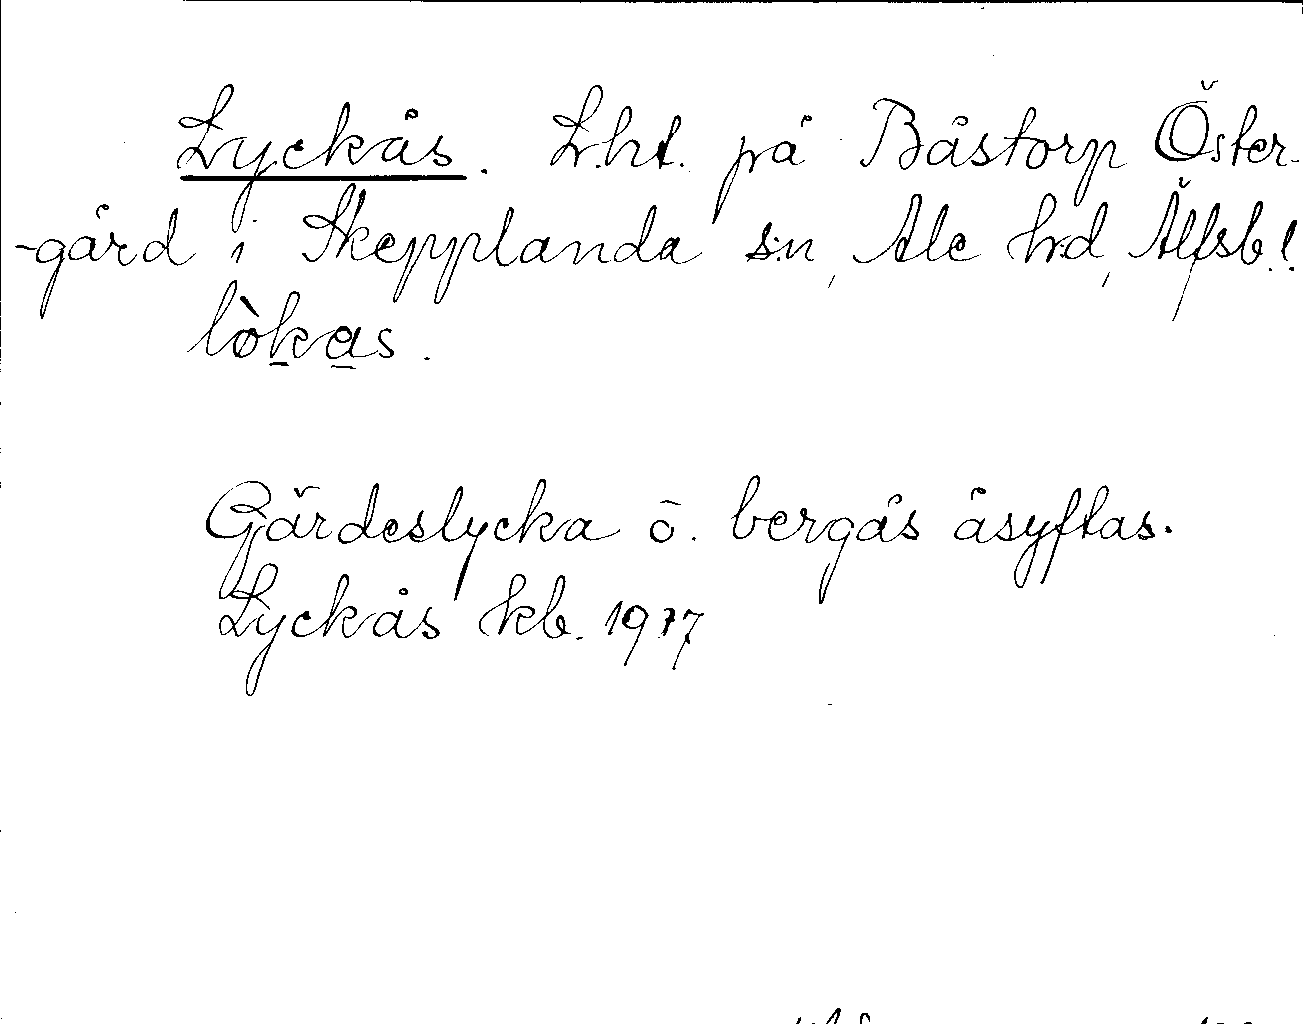 Lyckås. L.ht. på Båstorp Öster-
-gård i Skepplanda s:n, Ale h:d, Älfsb. l.
lòkas.
Gärdeslycka o. bergås åsyftas.
Lyckås kb. 1977